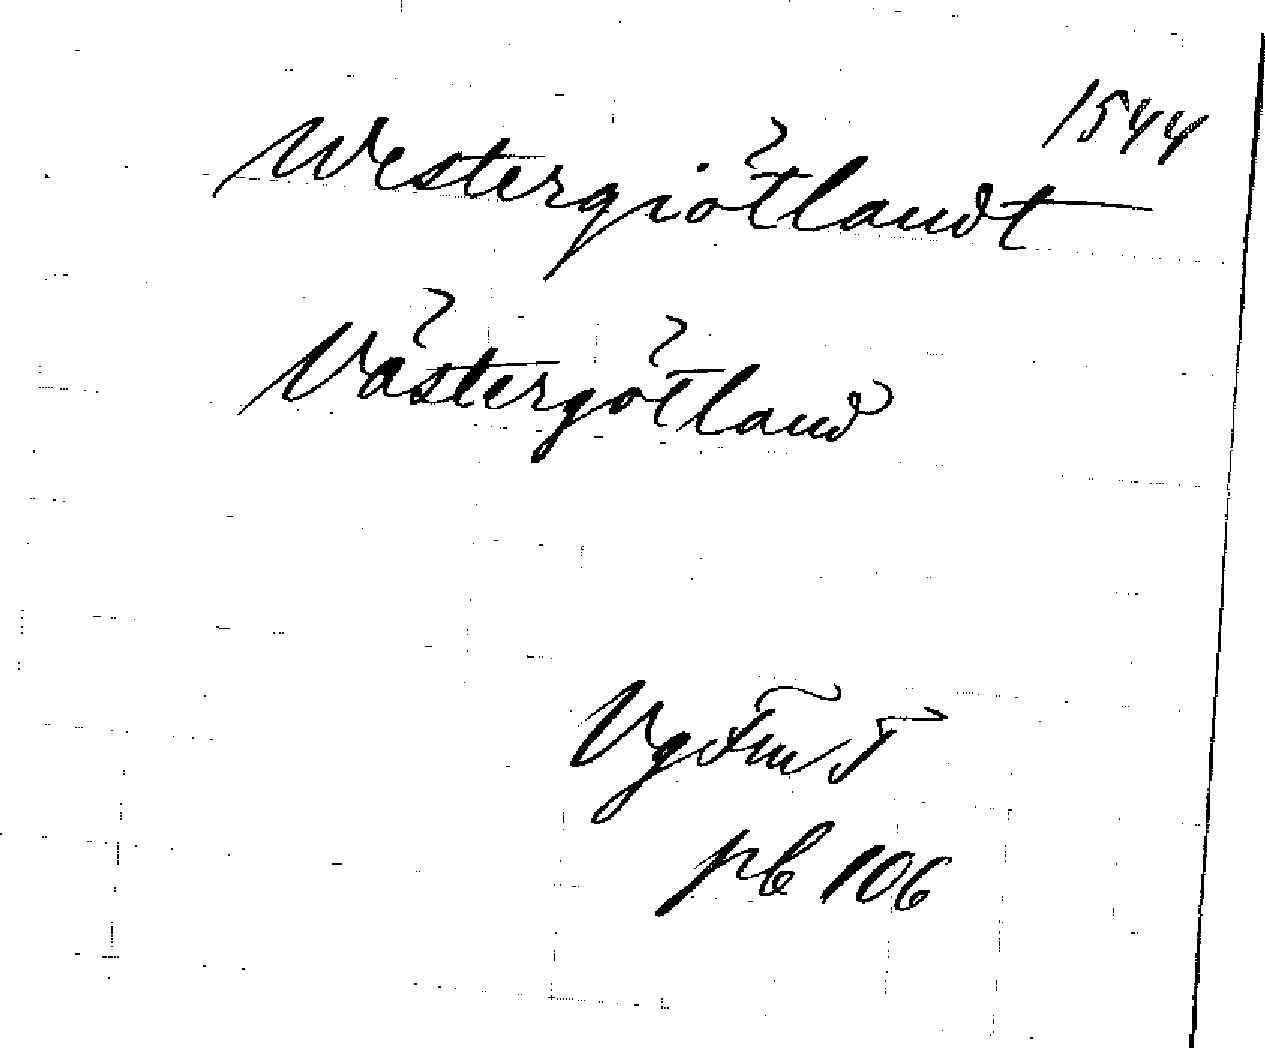 1544
Westergiötlandt
Västergötland
Vg Fm T
pb 106